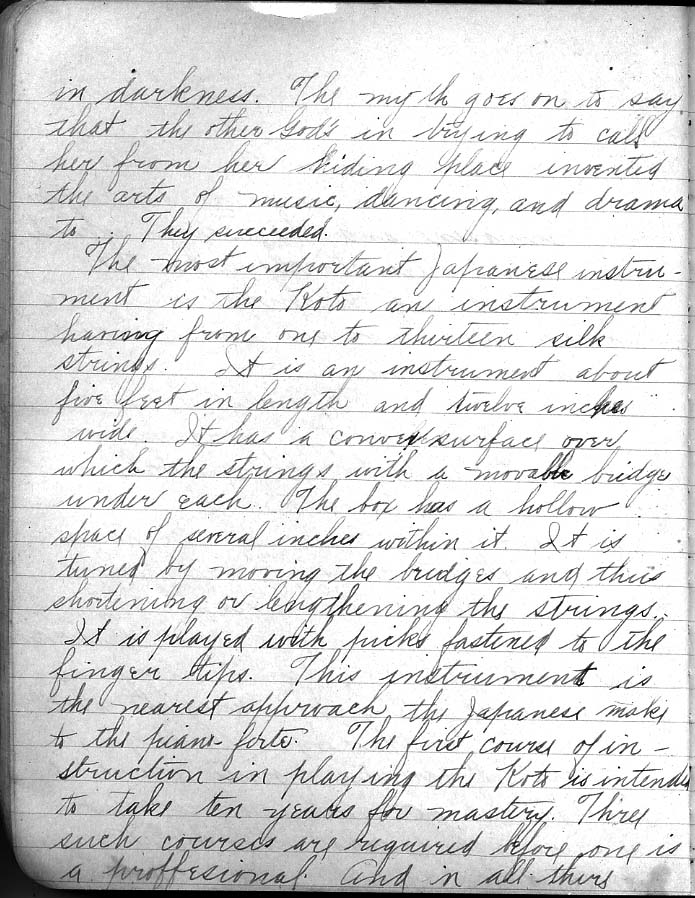 in darkness. The myth goes on to say
that the other God's in trying to call
her from her hiding place invented
the arts of music, dancing, and drama
to. They succeeded.
The most important Japanese instru-
ment is the Koto an instrument
having from one to thirteen silk
strings. It is an instrument about
five feet in length and twelve inches
wide. It has a convex surface over
which the strings with a movable bridge
under each. The box has a hollow
space of several inches within it. It is
tuned by moving the bridges and thus
shortening or lengthening the strings.
It is played with picks fastened to the
finger tips. This instrument is
the nearest approach the Japanese make
to the piano forte. The first course of in-
struction in playing the Koto is intended
to take ten years for mastery. Three
such courses are required before one is
a proffesional. And in all thers